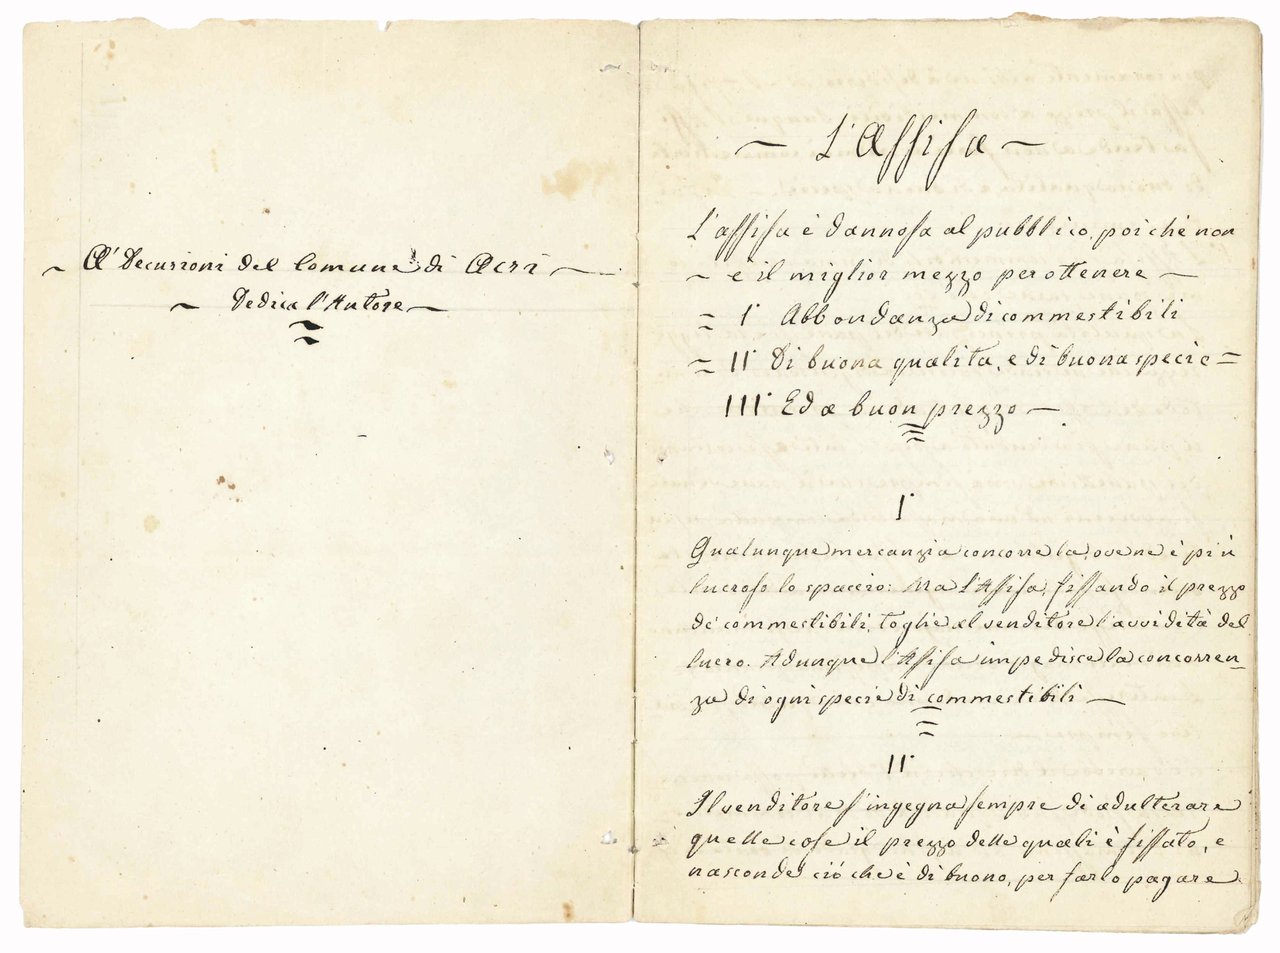 A' Decurioni del Comune di Acri
Dedica l'Autore
L'Assisa
L'assisa è dannosa al pubblico, poichè non
e il miglior mezzo per ottenere
I° Abbondanza di commestibili
II° Di buona qualita, e di buona specie
III° Ed a buon prezzo
I°
Qualunque mercanzia concorre la, ove ne è più
lucroso lo spaccio: Ma l'Assisa, fissando il prezzo
de' commestibili, toglie al venditore l'avvidità del
lucro. Adunque l'Assisa impedisce la concorren_
za di ogni specie di commestibili
II°
Il venditore s'ingegna sempre di adulterare
quelle cose il prezzo delle quali è fissato, e
nasconde ciò che è di buono, per farlo pagare